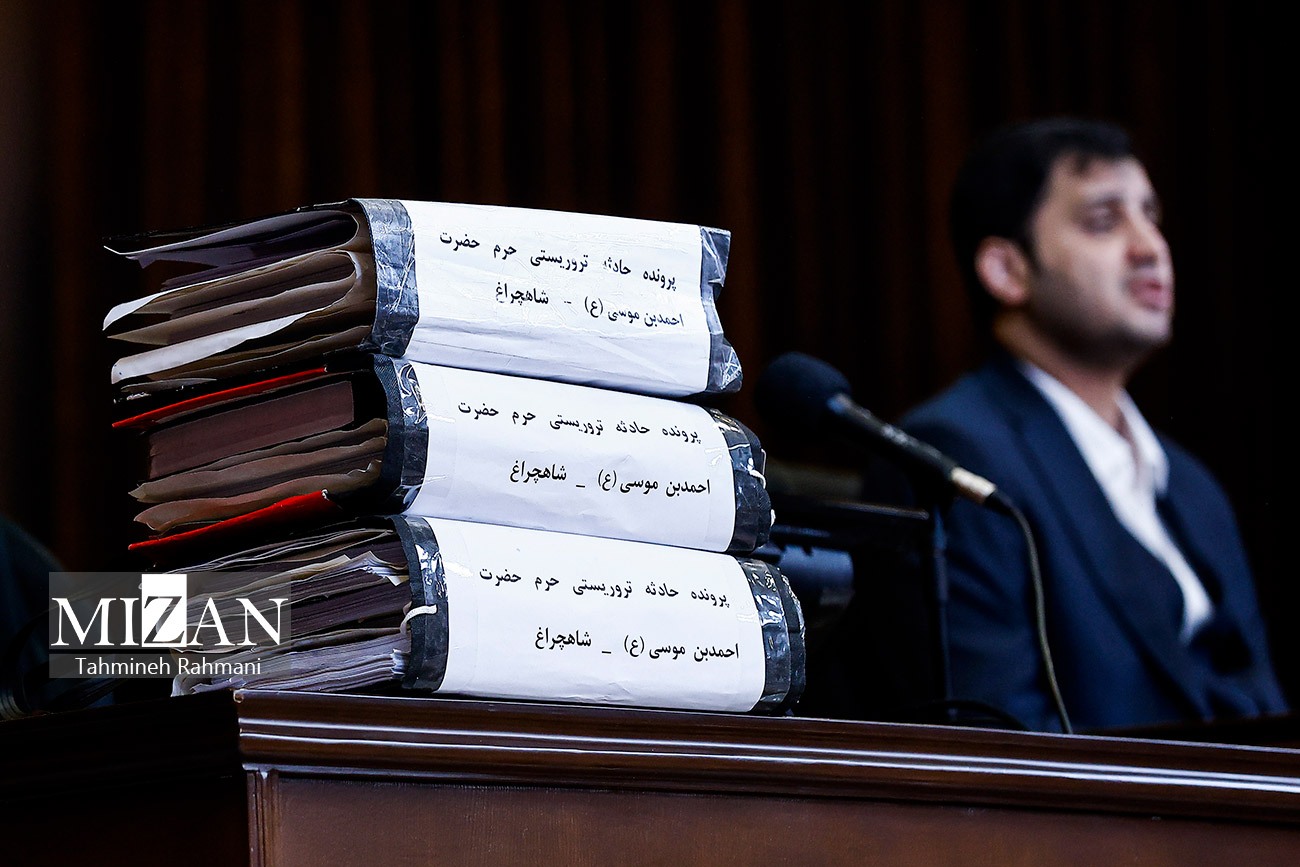 پرونده حادثه تروریستی حرم حضرت
احمدبن موسی (ع) - شاهچراغ
پرونده حادثه تروریستی حرم حضرت
احمدبن موسی (ع) _ شاهچراغ
پرونده حادثه تروریستی حرم حضرت
احمدبن موسی (ع) _ شاهچراغ
MIZAN
Tahmineh Rahmani